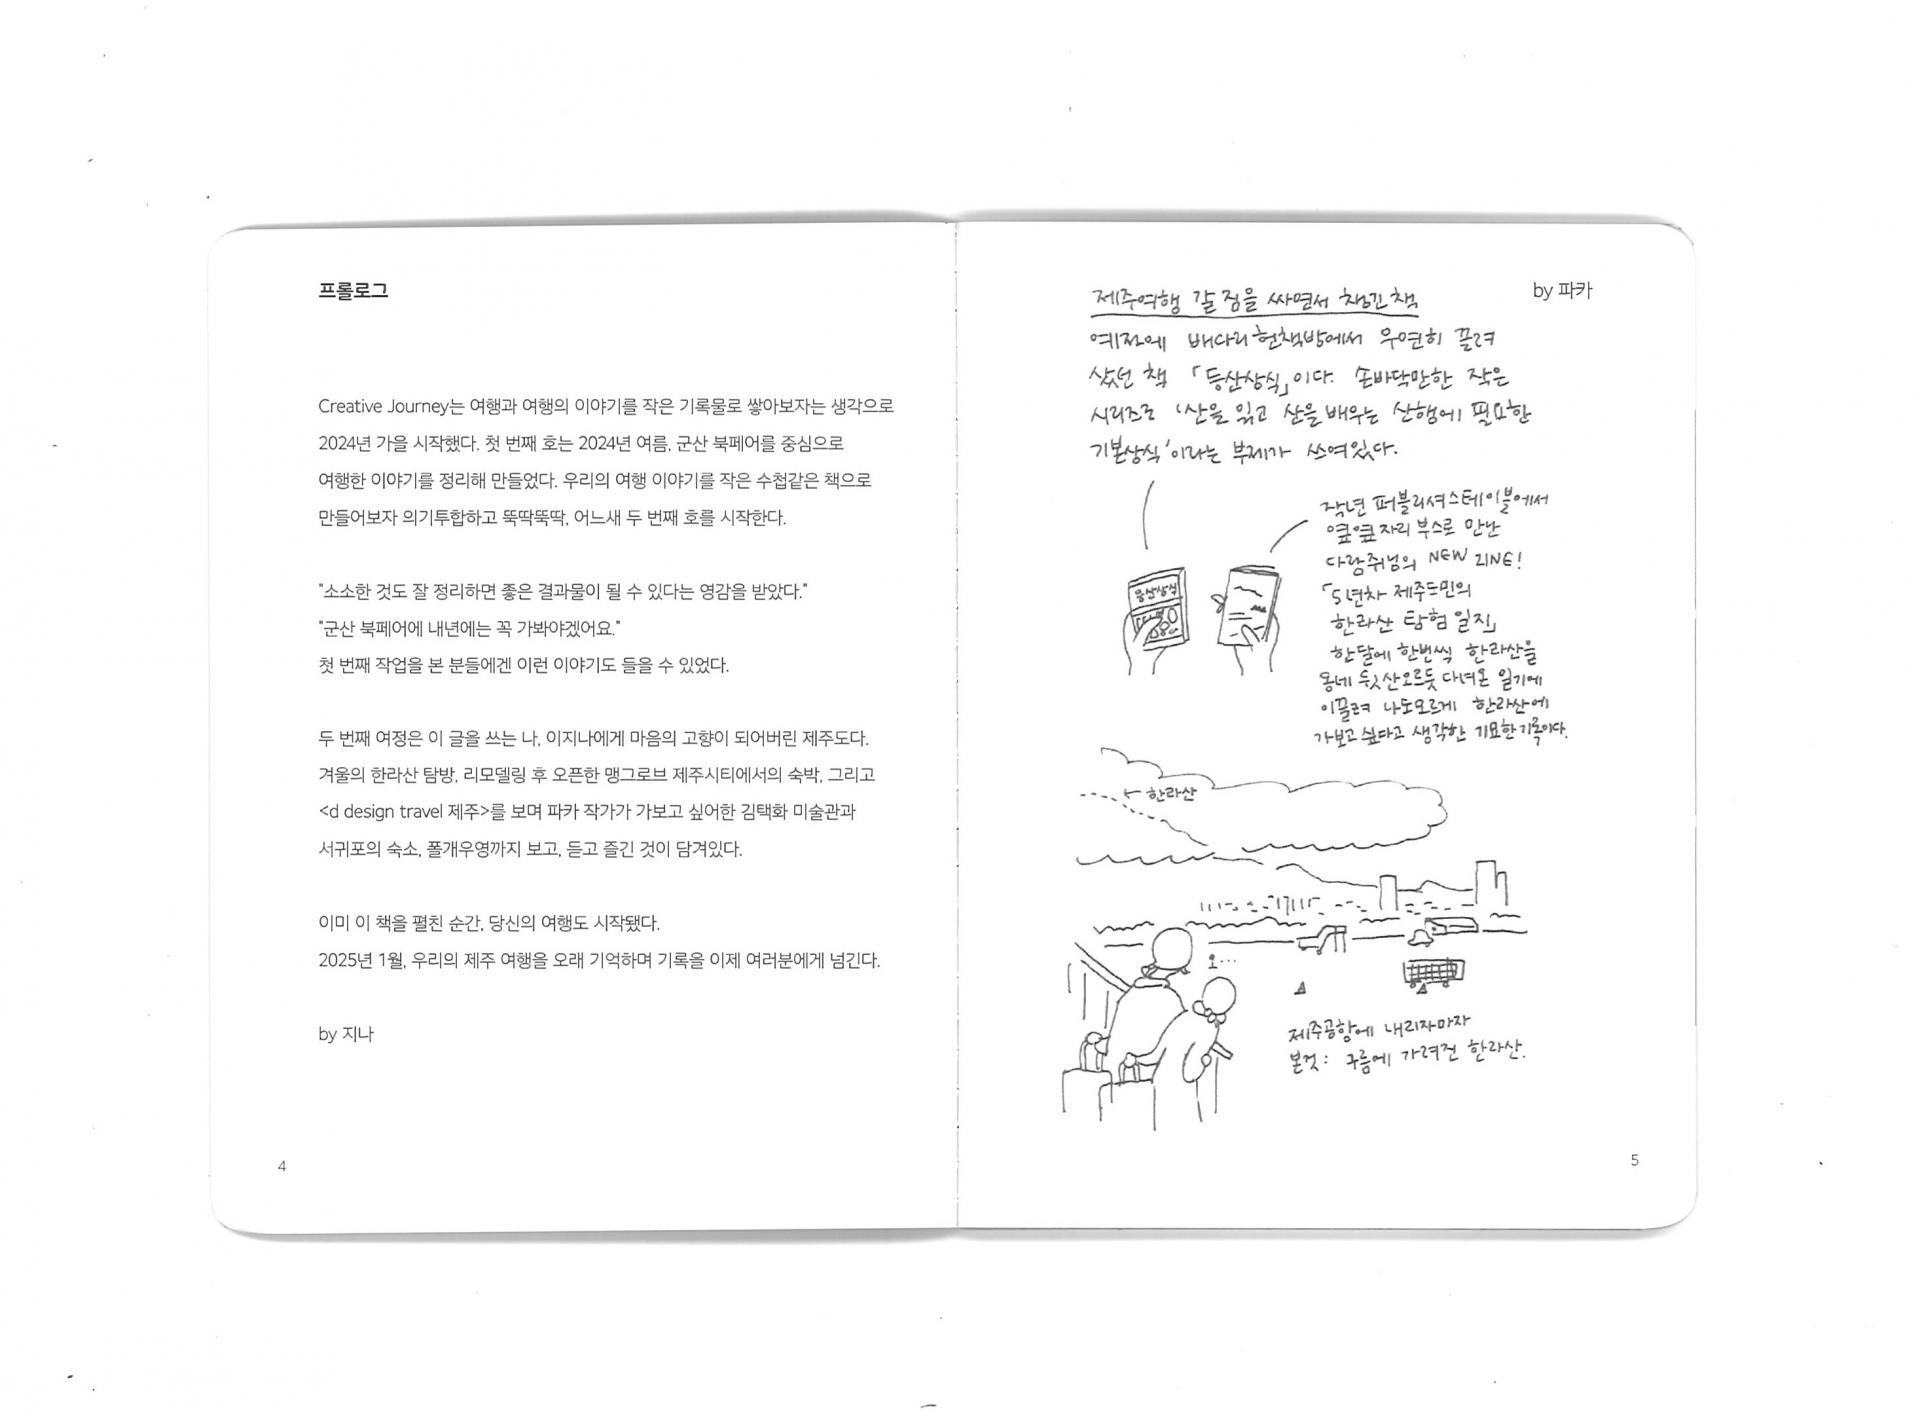 프롤로그
Creative Journey는 여행과 여행의 이야기를 작은 기록물로 쌓아보자는 생각으로
2024년 가을 시작했다. 첫 번째 호는 2024년 여름, 군산 북페어를 중심으로
여행한 이야기를 정리해 만들었다. 우리의 여행 이야기를 작은 수첩같은 책으로
만들어보자 의기투합하고 뚝딱뚝딱, 어느새 두 번째 호를 시작한다.
"소소한 것도 잘 정리하면 좋은 결과물이 될 수 있다는 영감을 받았다."
"군산 북페어에 내년에는 꼭 가봐야겠어요."
첫 번째 작업을 본 분들에겐 이런 이야기도 들을 수 있었다.
두 번째 여정은 이 글을 쓰는 나, 이지나에게 마음의 고향이 되어버린 제주도다.
겨울의 한라산 탐방, 리모델링 후 오픈한 맹그로브 제주시티에서의 숙박, 그리고
<d design travel 제주>를 보며 파카 작가가 가보고 싶어한 김택화 미술관과
서귀포의 숙소, 폴개우영까지 보고, 듣고 즐긴 것이 담겨있다.
이미 이 책을 펼친 순간, 당신의 여행도 시작됐다.
2025년 1월, 우리의 제주 여행을 오래 기억하며 기록을 이제 여러분에게 넘긴다.
by 지나
4
제주여행 갈 짐을 싸면서 챙긴 책
by 파카
예전에 배다리 헌책방에서 우연히 끌려
샀던 책 「등산상식」이다. 손바닥만한 작은
시리즈로 '산을 읽고 산을 배우는 산행에 필요한
기본상식'이라는 부제가 쓰여있다.
작년 퍼블리셔스테이블에서
옆옆자리 부스로 만난
다람쥐님의 NEW ZINE!
「5년차 제주도민의
한라산 탐험 일지」
한달에 한번씩 한라산을
동네 뒷산오르듯 다녀온 일기에
이끌려 나도모르게 한라산에
가보고 싶다고 생각한 기묘한 기록이다.
등산상식
← 한라산
오...
제주공항에 내리자마자
본것: 구름에 가려진 한라산.
5